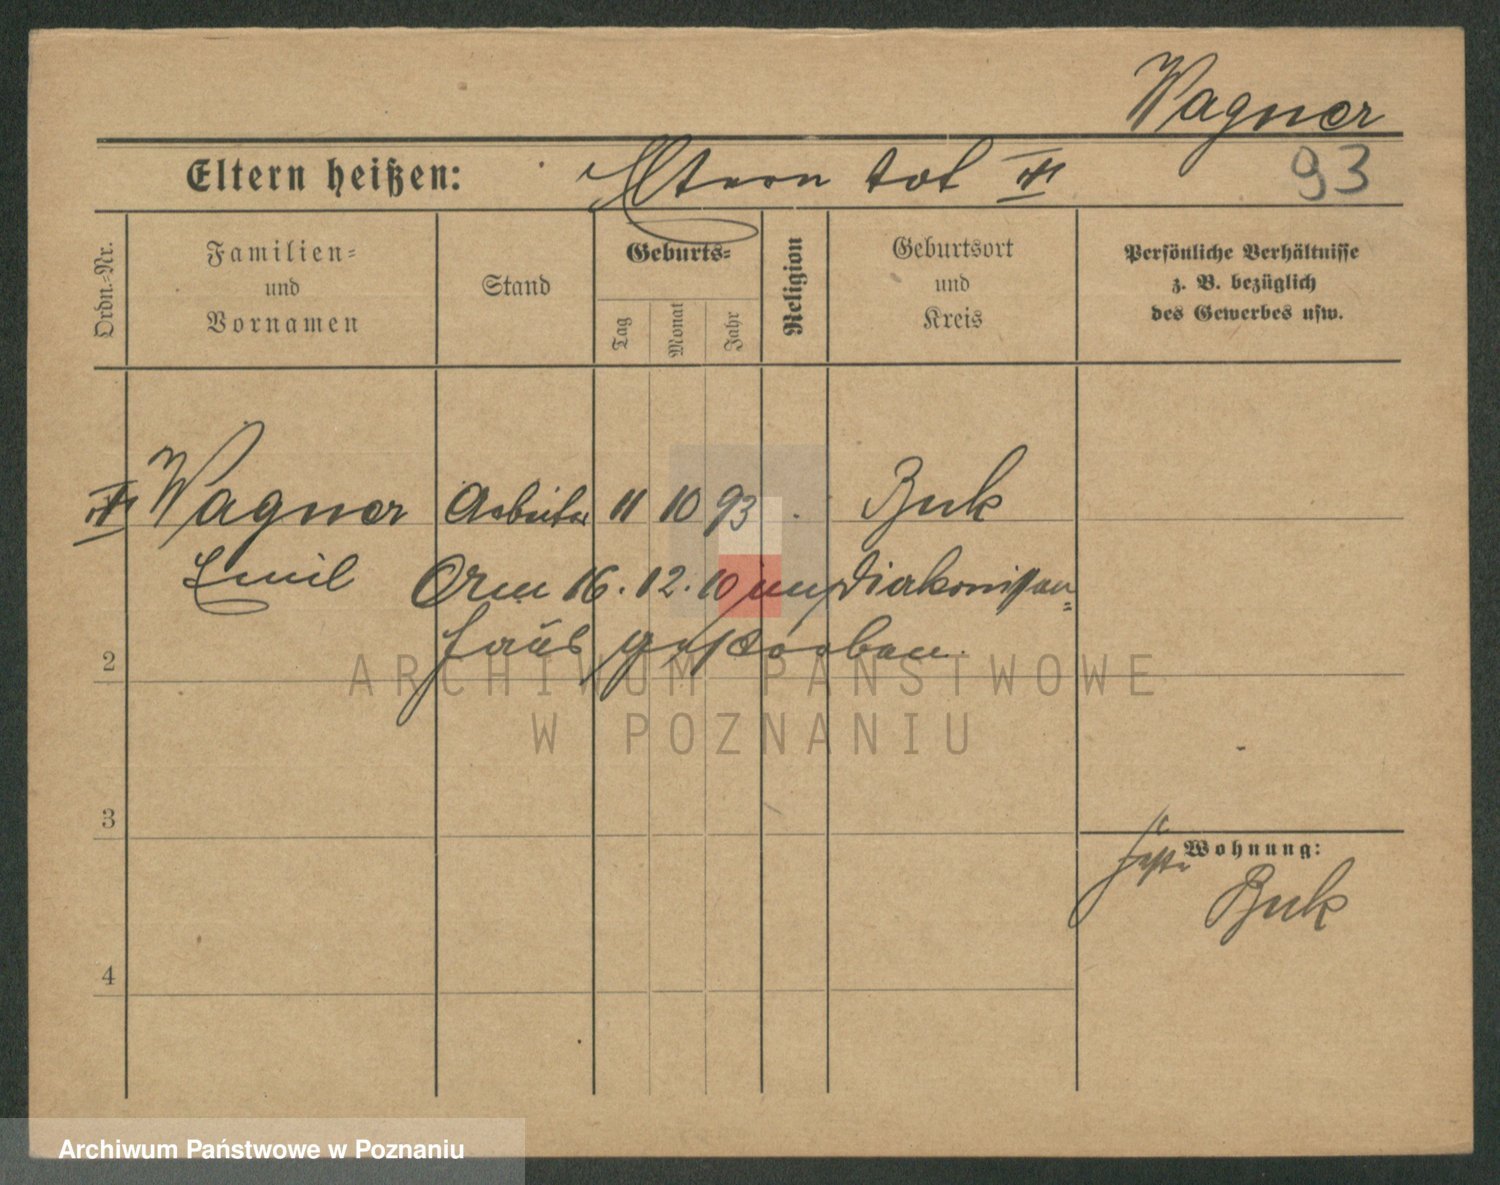 Wagner
93
Eltern heißen: Eltern tot
Ordn.-Nr.
Familien-
und
Vornamen
Stand
Geburts-
Tag
Monat
Jahr
Religion
Geburtsort
und
Kreis
Persönliche Verhältnisse
z. B. bezüglich
des Gewerbes usw.
Wagner Arbeiter 11 10 93 Buk
Emil Am 16. 12. 10 im Diakonissen=
haus gestorben.
2
3
4
Wohnung:
Buk
ARCHIWUM PAŃSTWOWE
W POZNANIU
Archiwum Państwowe w Poznaniu